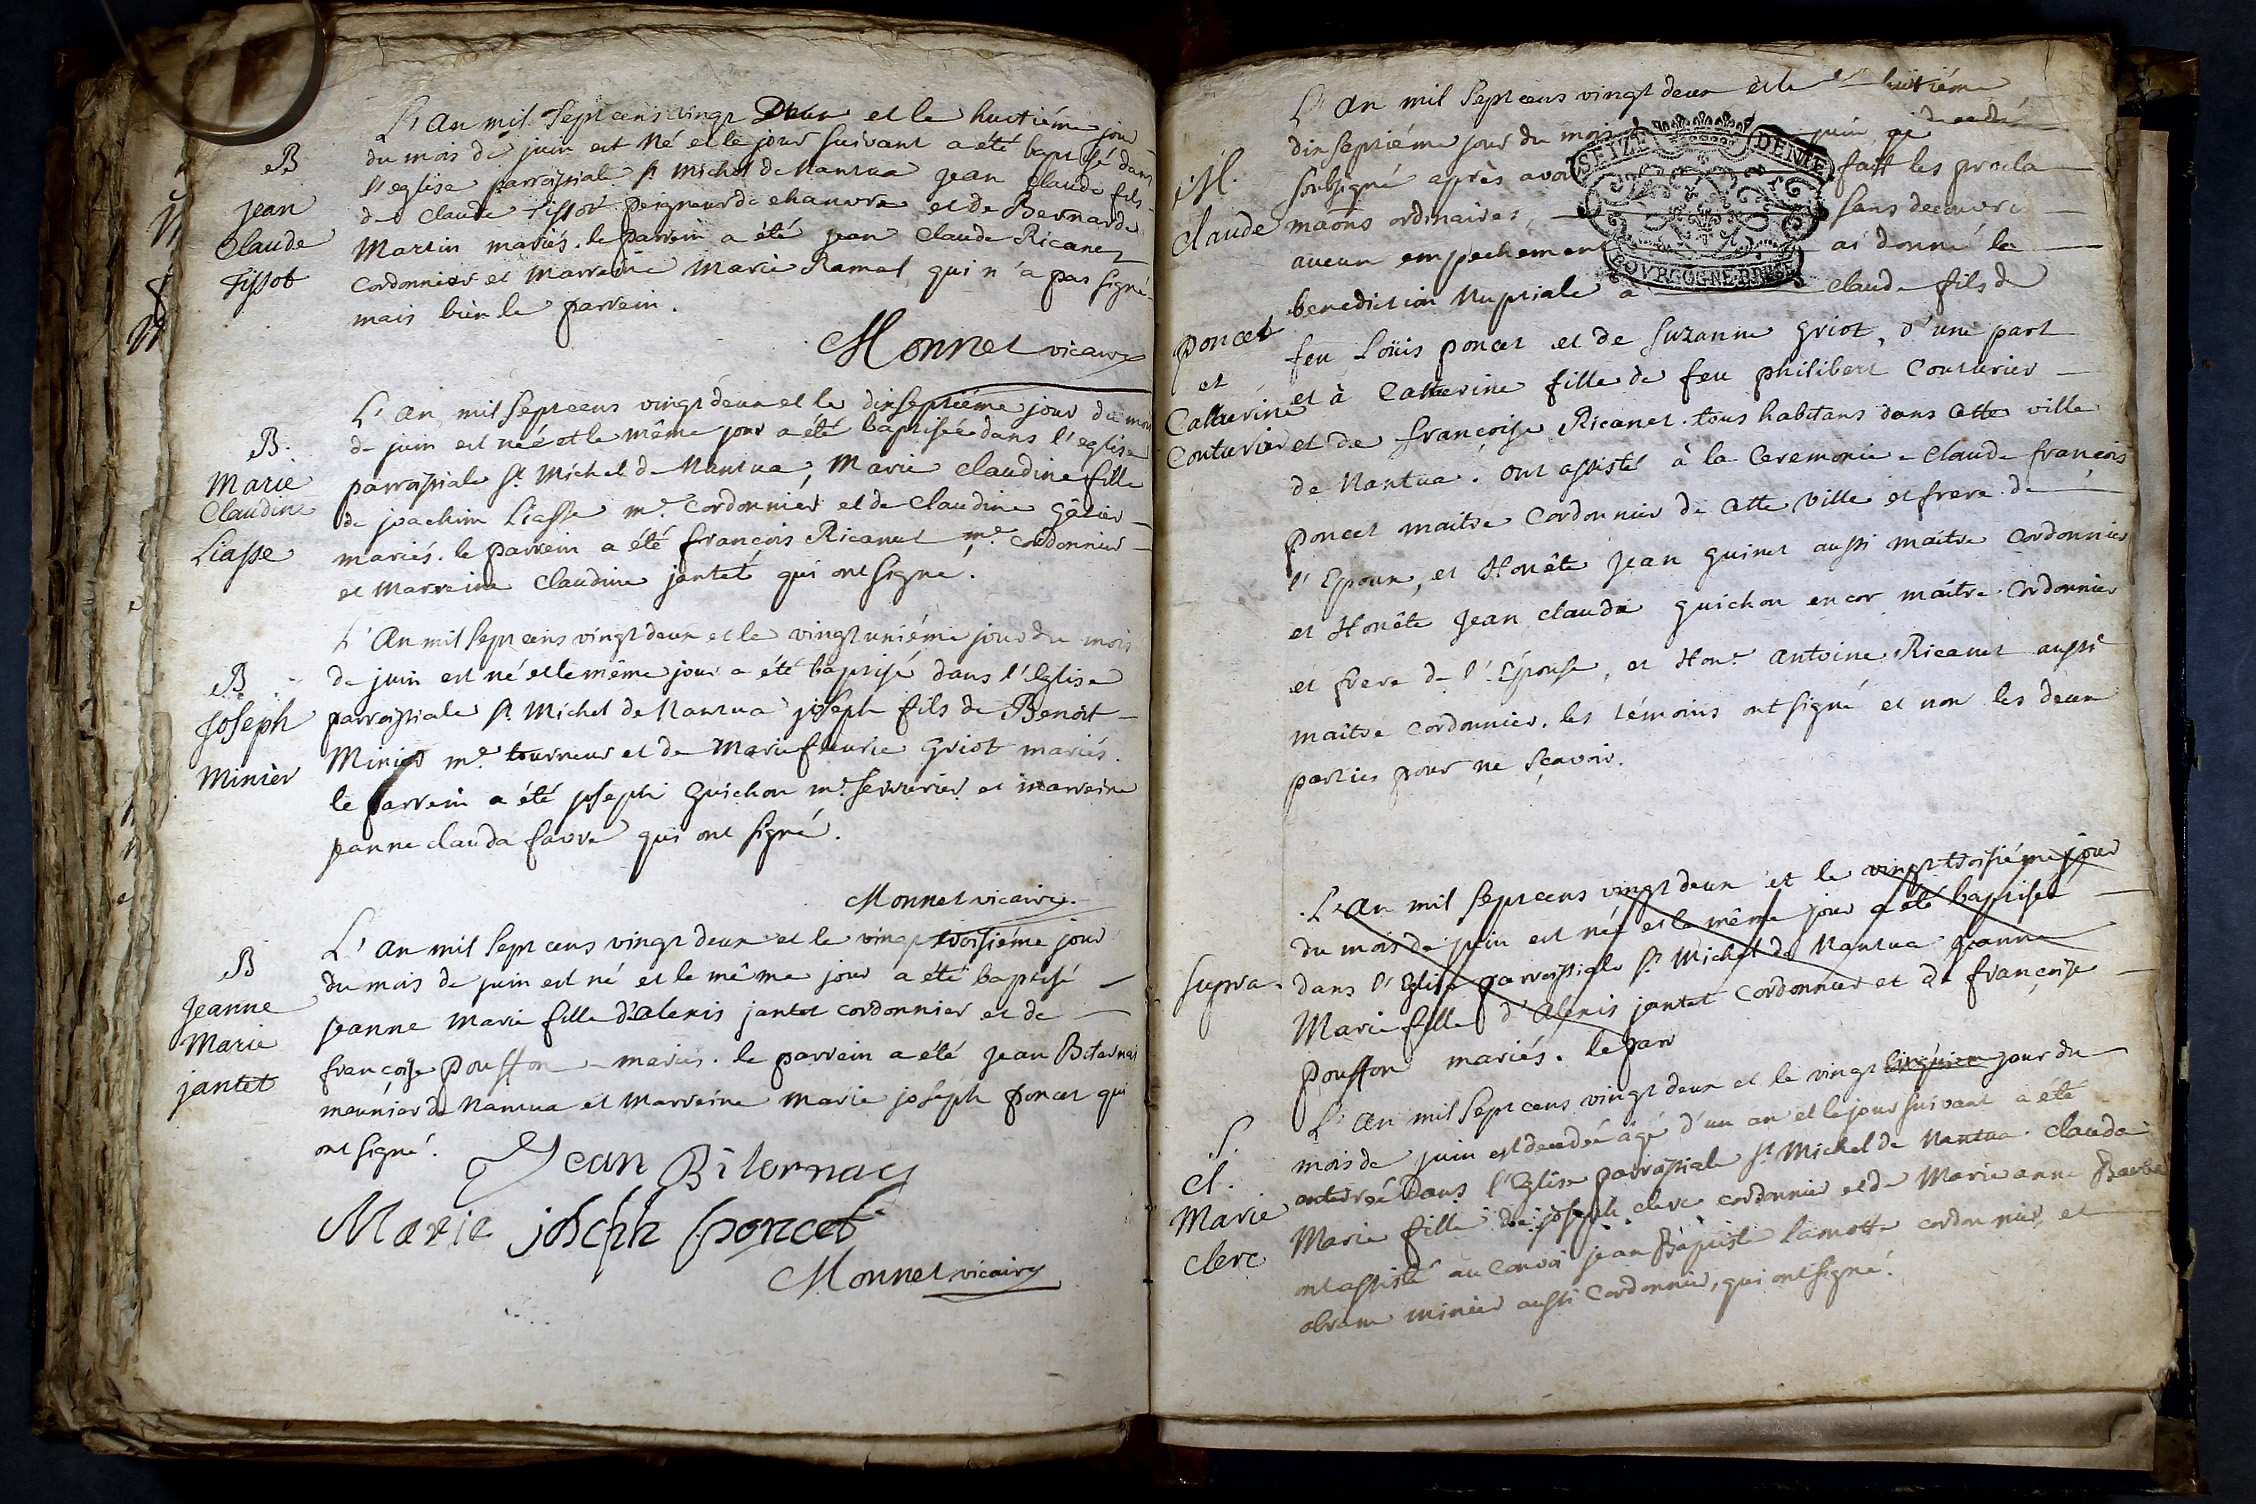 B
Jean
Claude
Tissot
L'An mil Sept cens vingt Deux et le huitiéme jour
du mois de juin est Né et le jour suivant a été baptisé dans
l'eglise parroissiale St. Michel de Nantua Jean Claude fils
de Claude Tissot peigneur de chanvre et de Bernarde
Martin mariés. le parrein a été Jean Claude Ricanet
Cordonnier et Marreine Marie Ramel, qui n'a pas signé
mais bien le parrein.
Monnet vicaire
B.
Marie
Claudine
Liasse
L'an mil Sept cens vingt deux et le dixseptiéme jour du mois
de juin est née et le même jour a été baptisée dans l'eglise
parroissiale St. Michel de Nantua, Marie Claudine fille
de joachim Liasse me. Cordonnier et de Claudine
mariés. le parrein a été françois Ricanet me. Cordonnier
et Marreine Claudine jantet qui ont signé.
B
Joseph
Minier
L'An mil Sept cens vingt deux et le vingt uniéme jour du mois
de juin est né et le même jour a été baptisé dans l'Eglise
parroissiale St. Michel de Nantua joseph fils de Benoît
Minier me. tourneur et de Marie fleurie Griot mariés.
le parrein a été joseph Guichon me. serrurier et marreine
jeanne clauda favre qui ont signé.
Monnet vicaire.
B
Jeanne
Marie
jantet
L'An mil Sept cens vingt deux et le vingt troisiéme jour
du mois de juin est né et le même jour a été baptisé
jeanne Marie fille d'alexis jantet cordonnier et de
françoise pousson mariés. le parrein a été Jean Bitornai
meunier de Nantua et Marreine Marie joseph poncet qui
ont signé.
Jean Bilornay
Marie joseph poncet
Monnet vicaire
M.
Claude
poncet
et
Catherine
Couturier
L'An mil Sept cens vingt deux et le huitiéme
dixseptiéme jour du mois juin je
soussigné après avoir fait les procla
maõns ordinaires, sans decouvrir
aucun empechement ai donné la
benediction Nuptiale a Claude fils de
feu Loüis poncet et de Suzanne Griot, d'une part
et à Catherine fille de feu philibert Couturier
et de françoise Ricanet. tous habitans dans cette ville
de Nantua. ont assisté à la Ceremonie Claude françois
poncet maitre Cordonnier de cette ville et frere de
l'Epoux, et Honête Jean Guinet aussi maitre Cordonnier
et Honête Jean Claude Guichon encor maître Cordonnier
et frere de l'Epouse, et Hone. Antoine Ricanet aussi
maître Cordonnier. les témoins ont signé et non les deux
parties pour ne sçavoir.
SEIZE DENIE
BOVRGOGNE
supra.
L'An mil Sept cens vingt deux et le vingt troisiéme jour
du mois de juin est née et le même jour a été baptisée
dans l'Eglise parroissiale St. Michel de Nantua Jeanne
Marie fille d'Alexis jantet Cordonnier et de françoise
pousson mariés. le par
S.
Cl.
Marie
Clerc
L'An mil Sept cens vingt deux et le vingt jour du
mois de juin est decedée agé d'un an et le jour suivant a été
enterrée Dans l'Eglise parroissiale St. Michel de Nantua Clauda
Marie fille de joseph Clerc cordonnier et de Marie anne
ont assisté au Convoi jean Baptiste Lamotte cordonnier, et
abram minier aussi Cordonnier, qui ont signé.